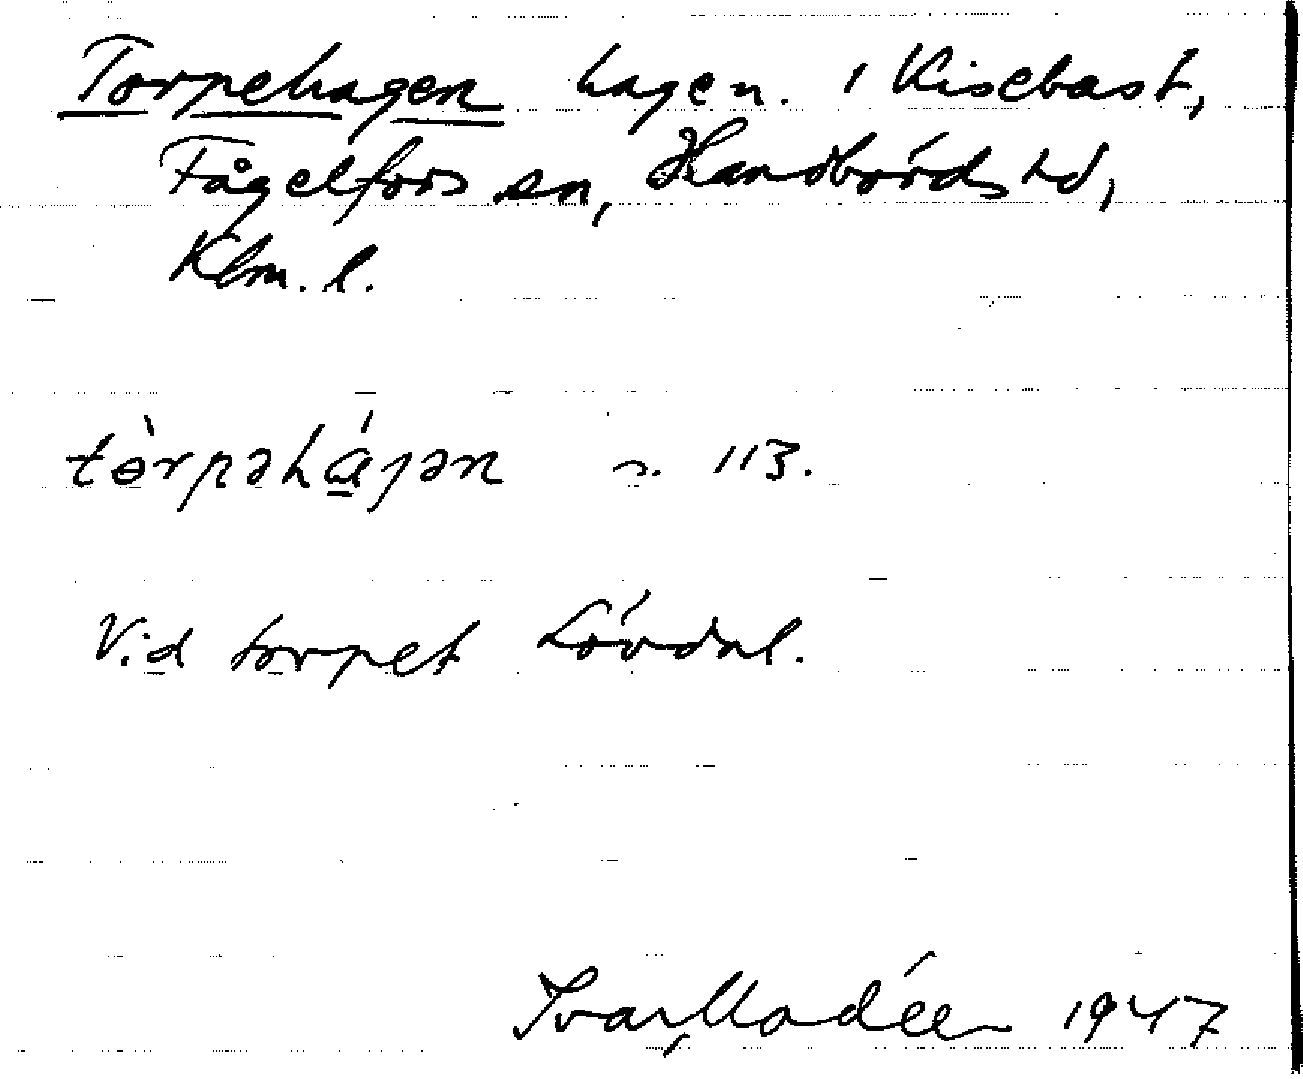 Torpehagen hagen. i Kisebast,
Fågelfors sn, Handbörds hd,
Klm. l.
tòrpəhá̱gən n. 113.
Vid torpet Lövdal.
Ivar Modéer 1947